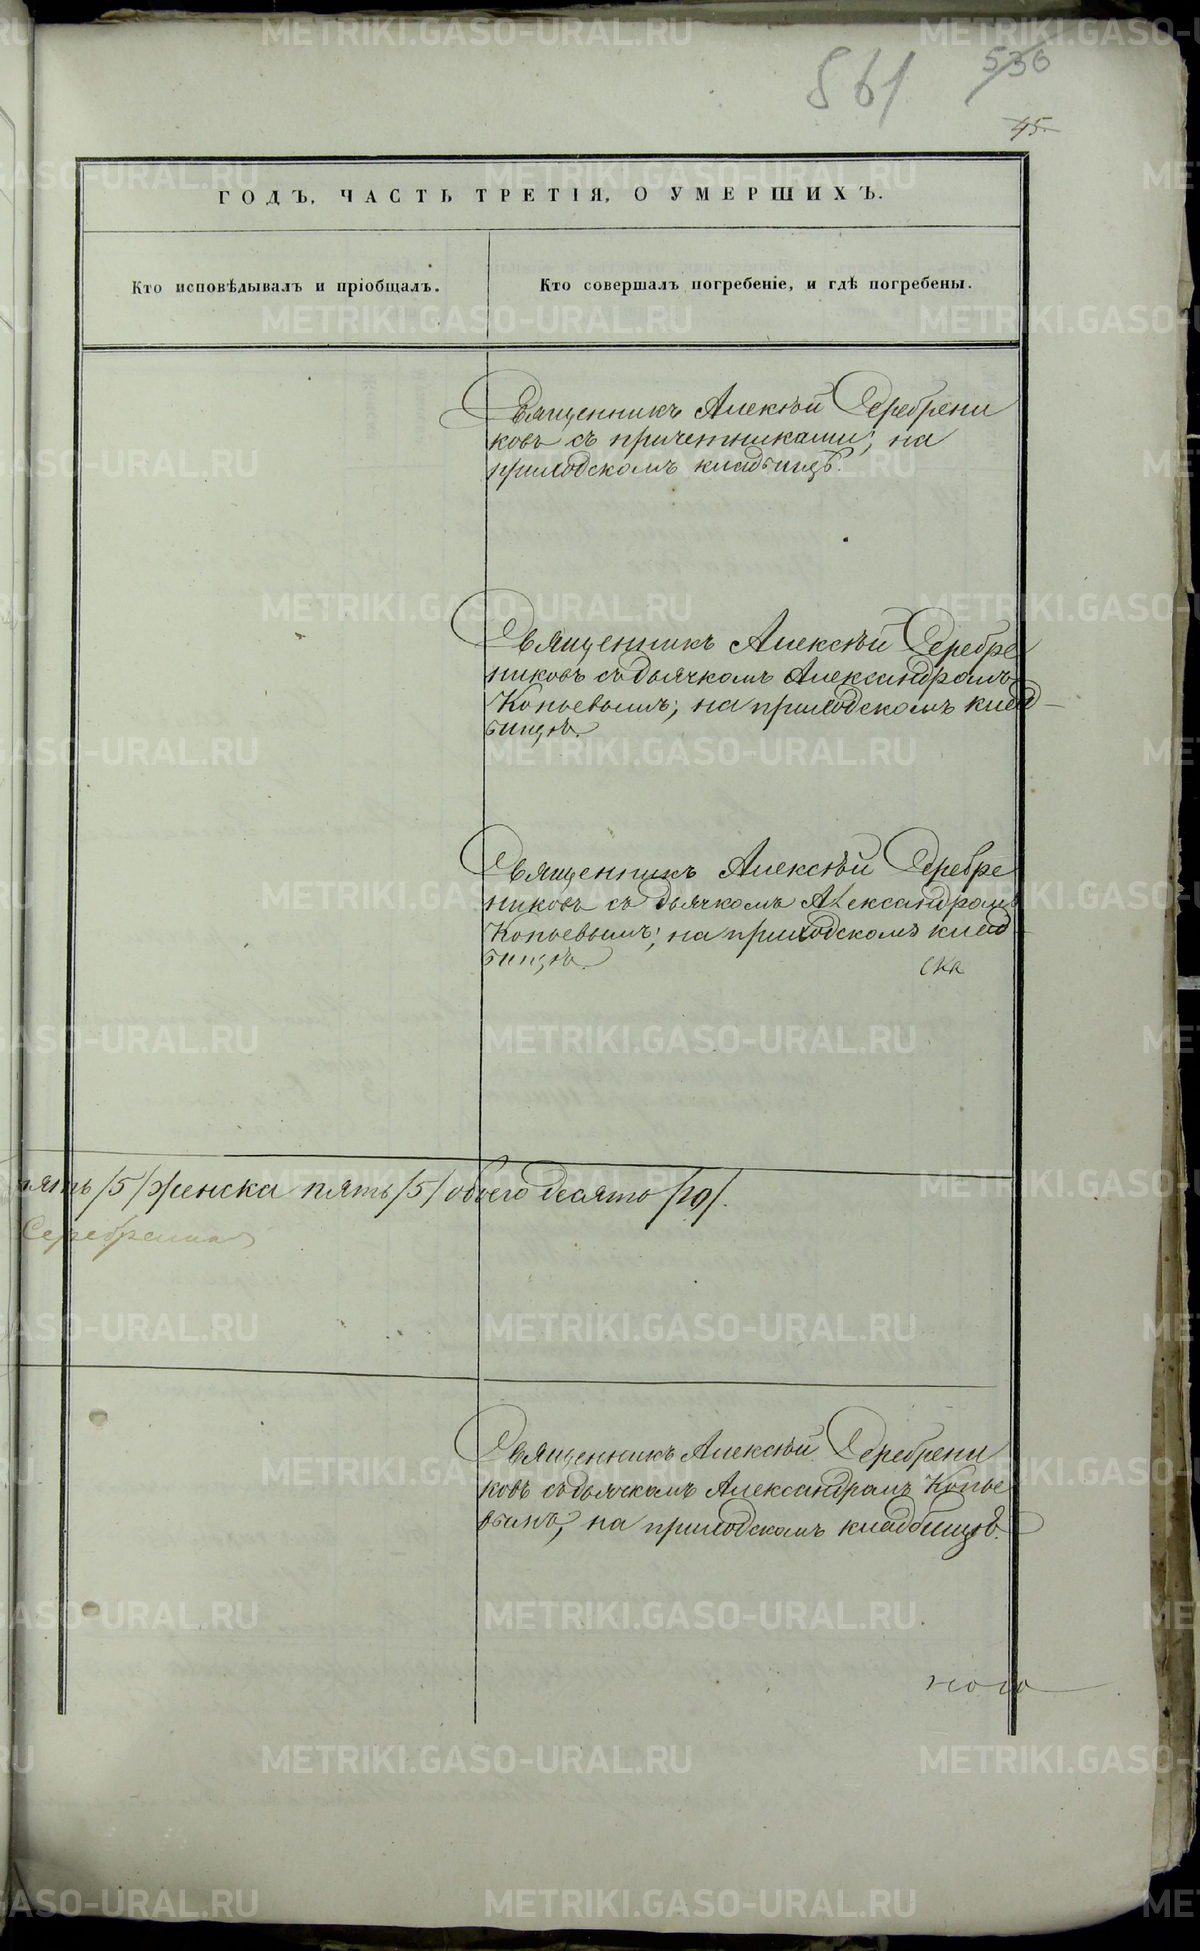 561
536
45.
ГОДЪ, ЧАСТЬ ТРЕТІЯ, О УМЕРШИХЪ.
Кто исповѣдывалъ и пріобщалъ.
Кто совершалъ погребеніе, и гдѣ погребены.
Священникъ Алексѣй Серебрени
ковъ съ причетниками; на
приходскомъ кладбищѣ.
Священникъ Алексѣй Серебре
никовъ съ дьячкомъ Александромъ
Копьевымъ; на приходскомъ клад
бищѣ.
Священникъ Алексѣй Серебре
никовъ съ дьячкомъ Александромъ
Копьевымъ; на приходскомъ клад
бищѣ.
ска
пять /5/ женска пять /5/ обоего десять /10/.
Священникъ Алексѣй Серебрени
ковъ съ дьячкомъ Александромъ Копье
вымъ, на приходскомъ кладбищѣ.
ного
METRIKI.GASO-URAL.RU